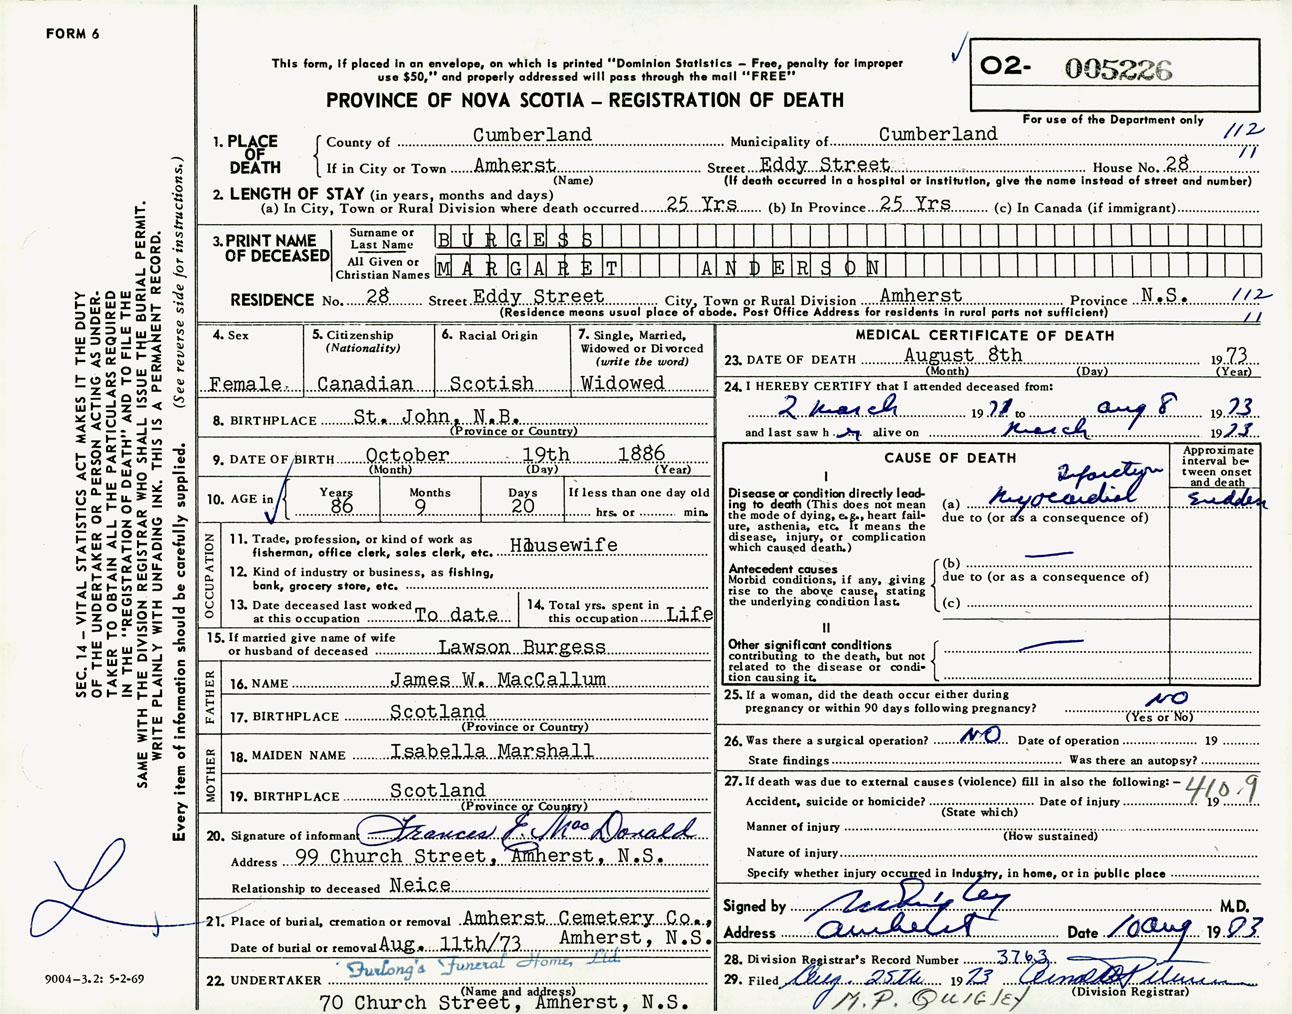 FORM 6
This form, if placed in an envelope, on which is printed "Dominion Statistics – Free, penalty for improper
use $50," and properly addressed will pass through the mail "FREE"
02- 005226
PROVINCE OF NOVA SCOTIA – REGISTRATION OF DEATH
For use of the Department only
1. PLACE OF DEATH County of Cumberland Municipality of Cumberland 112
If in City or Town Amherst Street Eddy Street House No. 28 11
(Name) (If death occurred in a hospital or institution, give the name instead of street and number)
2. LENGTH OF STAY (in years, months and days)
(a) In City, Town or Rural Division where death occurred 25 Yrs (b) In Province 25 Yrs (c) In Canada (if immigrant)
3. PRINT NAME OF DECEASED Surname or Last Name BURGESS
All Given or Christian Names MARGARET ANDERSON
RESIDENCE No. 28 Street Eddy Street City, Town or Rural Division Amherst Province N.S. 112
(Residence means usual place of abode. Post Office Address for residents in rural parts not sufficient) 11
4. Sex Female
5. Citizenship (Nationality) Canadian
6. Racial Origin Scotish
7. Single, Married, Widowed or Divorced (write the word) Widowed
8. BIRTHPLACE St. John, N.B.
(Province or Country)
9. DATE OF BIRTH October 19th 1886
(Month) (Day) (Year)
10. AGE in Years 86 Months 9 Days 20 If less than one day old
hrs. or min.
OCCUPATION
11. Trade, profession, or kind of work as
fisherman, office clerk, sales clerk, etc. Housewife
12. Kind of industry or business, as fishing,
bank, grocery store, etc.
13. Date deceased last worked at this occupation To date
14. Total yrs. spent in this occupation Life
15. If married give name of wife
or husband of deceased Lawson Burgess
FATHER
16. NAME James W. MacCallum
17. BIRTHPLACE Scotland
(Province or Country)
MOTHER
18. MAIDEN NAME Isabella Marshall
19. BIRTHPLACE Scotland
(Province or Country)
20. Signature of informant Frances J. MacDonald
Address 99 Church Street, Amherst, N.S.
Relationship to deceased Neice
21. Place of burial, cremation or removal Amherst Cemetery Co.,
Date of burial or removal Aug. 11th/73 Amherst, N.S.
Furlong's Funeral Home, Ltd.
22. UNDERTAKER
(Name and address)
70 Church Street, Amherst, N.S.
MEDICAL CERTIFICATE OF DEATH
23. DATE OF DEATH August 8th 1973
(Month) (Day) (Year)
24. I HEREBY CERTIFY that I attended deceased from:
2 March 1971 to Aug 8 1973
and last saw her alive on March 1973
CAUSE OF DEATH
Approximate interval between onset and death
I
Disease or condition directly lead-
ing to death (This does not mean
the mode of dying, e.g., heart fail-
ure, asthenia, etc. It means the
disease, injury, or complication
which caused death.)
(a) Myocardial Infarction Sudden
due to (or as a consequence of)
Antecedent causes
Morbid conditions, if any, giving
rise to the above cause, stating
the underlying condition last.
(b)
due to (or as a consequence of)
(c)
II
Other significant conditions
contributing to the death, but not
related to the disease or condi-
tion causing it.
25. If a woman, did the death occur either during
pregnancy or within 90 days following pregnancy? NO
(Yes or No)
26. Was there a surgical operation? NO Date of operation 19
State findings Was there an autopsy?
27. If death was due to external causes (violence) fill in also the following: – 410.9
Accident, suicide or homicide? Date of injury 19
(State which)
Manner of injury
(How sustained)
Nature of injury
Specify whether injury occurred in Industry, in home, or in public place
Signed by M.D.
Address Amherst Date 10 Aug 1973
28. Division Registrar's Record Number 3763
29. Filed Aug. 25th 1973
(Division Registrar)
M.P. QUIGLEY
SEC. 14 – VITAL STATISTICS ACT MAKES IT THE DUTY
OF THE UNDERTAKER OR PERSON ACTING AS UNDER-
TAKER TO OBTAIN ALL THE PARTICULARS REQUIRED
IN THE "REGISTRATION OF DEATH" AND TO FILE THE
SAME WITH THE DIVISION REGISTRAR WHO SHALL ISSUE THE BURIAL PERMIT.
WRITE PLAINLY WITH UNFADING INK. THIS IS A PERMANENT RECORD.
Every item of information should be carefully supplied. (See reverse side for instructions.)
9004-3.2: 5-2-69